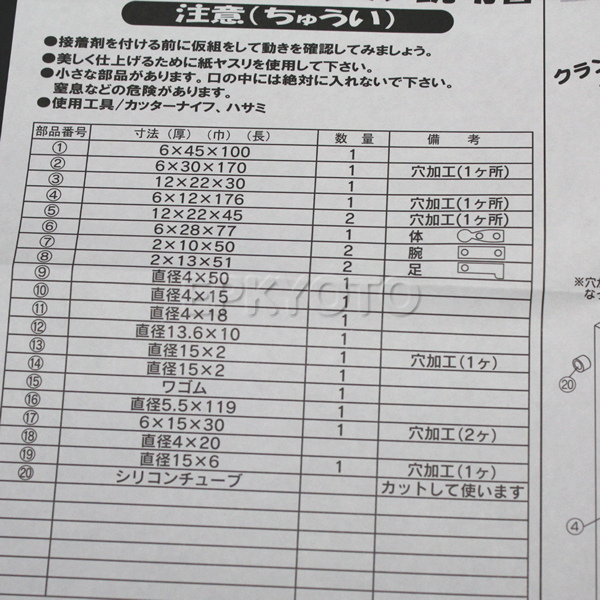 注意(ちゅうい)
●接着剤を付ける前に仮組をして動きを確認してみましょう。
●美しく仕上げるために紙ヤスリを使用して下さい。
●小さな部品があります。口の中には絶対に入れないで下さい。
窒息などの危険があります。
●使用工具/カッターナイフ、ハサミ
部品番号 寸法(厚)(巾)(長) 数量 備考
① 6×45×100 1
② 6×30×170 1 穴加工(1ヶ所)
③ 12×22×30 1
④ 6×12×176 1 穴加工(1ヶ所)
⑤ 12×22×45 2 穴加工(1ヶ所)
⑥ 6×28×77 1 体
⑦ 2×10×50 2 腕
⑧ 2×13×51 2 足
⑨ 直径4×50 1
⑩ 直径4×15 1
⑪ 直径4×18 1
⑫ 直径13.6×10 1
⑬ 直径15×2 1 穴加工(1ヶ)
⑭ 直径15×2 1
⑮ ワゴム
⑯ 直径5.5×119 1
⑰ 6×15×30 1 穴加工(2ヶ)
⑱ 直径4×20
⑲ 直径15×6 1 穴加工(1ヶ)
⑳ シリコンチューブ カットして使います
クラン
※穴が
なっ
⑳
④